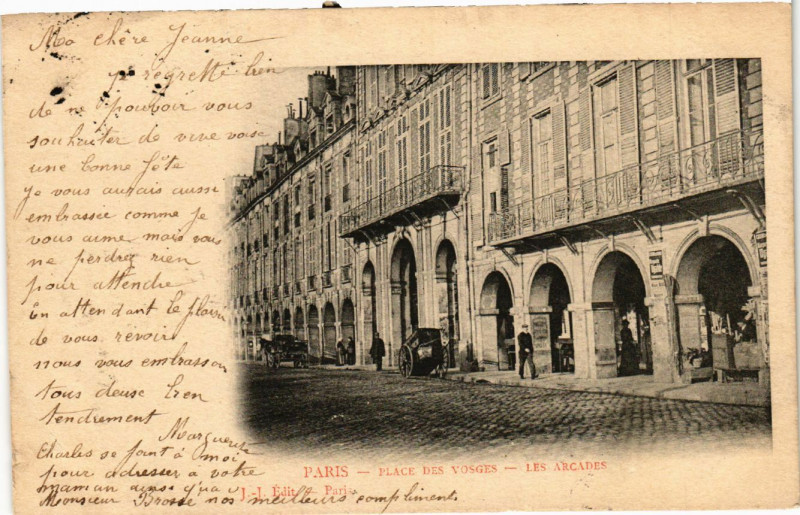 Ma chère Jeanne
je regrette bien
de ne pouvoir vous
souhaiter de vive voise
une bonne fête
Je vous aurais aussi
embrassée comme je
vous aime mais vous
ne perdrez rien
pour attendre
En attendant le plaisir
de vous revoir
nous vous embrasson
tous deuse bien
tendrement
Marguerite
Charles se joint à moi
pour adresser à votre
maman ainsi qu'a
Monsieur Brosse nos meilleurs compliments
PARIS — PLACE DES VOSGES — LES ARCADES
J.-J. Édit. — Paris